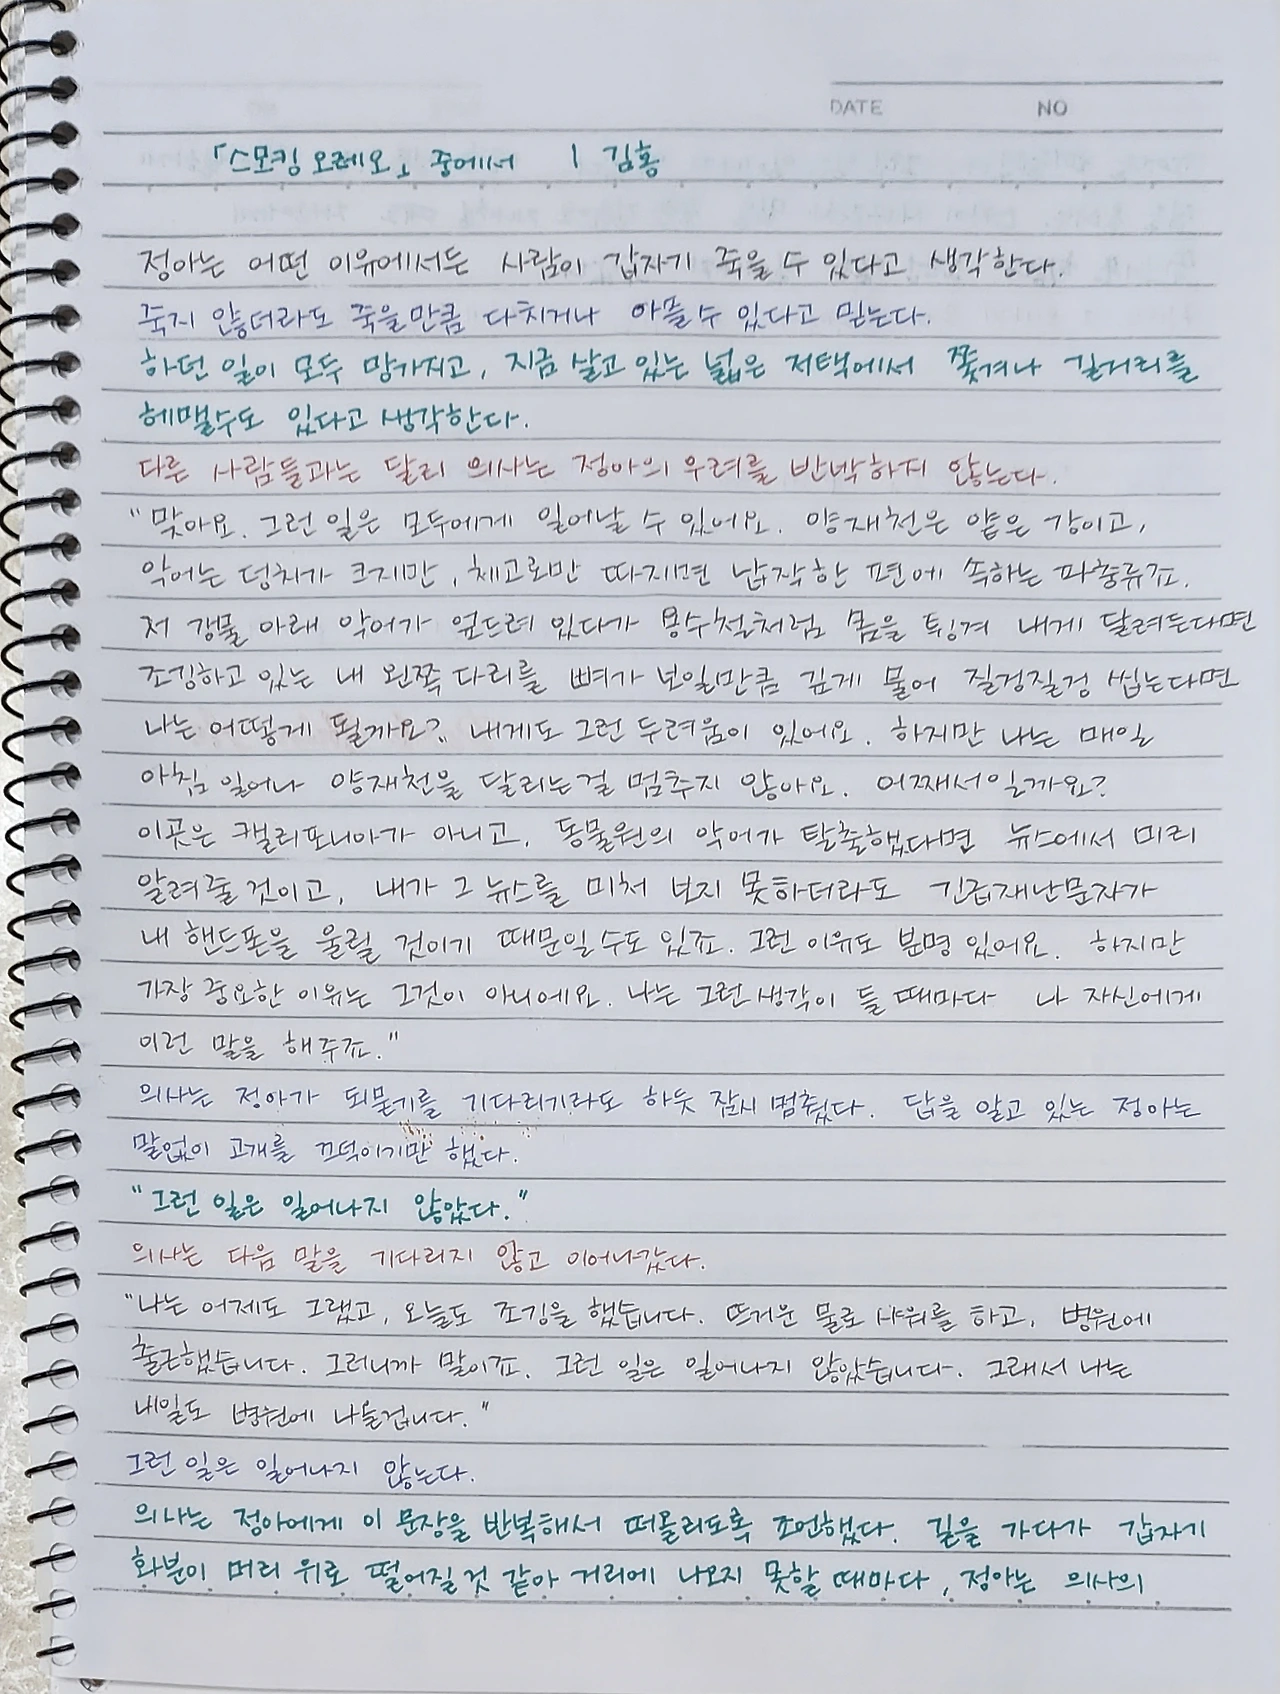 DATE NO
「스모킹 오레오」 중에서 | 김홍
정아는 어떤 이유에서든 사람이 갑자기 죽을 수 있다고 생각한다.
죽지 않더라도 죽을만큼 다치거나 아플수 있다고 믿는다.
하던 일이 모두 망가지고, 지금 살고 있는 넓은 저택에서 쫓겨나 길거리를
헤맬수도 있다고 생각한다.
다른 사람들과는 달리 의사는 정아의 우려를 반박하지 않는다.
"맞아요. 그런 일은 모두에게 일어날 수 있어요. 양재천은 얕은 강이고,
악어는 덩치가 크지만, 체고로만 따지면 납작한 편에 속하는 파충류죠.
저 강물 아래 악어가 엎드려 있다가 용수철처럼 몸을 튕겨 내게 달려든다면
조깅하고 있는 내 왼쪽 다리를 뼈가 보일만큼 깊게 물어 질겅질겅 씹는다면
나는 어떻게 될까요? 내게도 그런 두려움이 있어요. 하지만 나는 매일
아침 일어나 양재천을 달리는걸 멈추지 않아요. 어째서일까요?
이곳은 캘리포니아가 아니고, 동물원의 악어가 탈출했다면 뉴스에서 미리
알려줄 것이고, 내가 그 뉴스를 미처 보지 못하더라도 긴급재난문자가
내 핸드폰을 울릴 것이기 때문일 수도 있죠. 그런 이유도 분명 있어요. 하지만
가장 중요한 이유는 그것이 아니에요. 나는 그런 생각이 들 때마다 나 자신에게
이런 말을 해주죠."
의사는 정아가 되묻기를 기다리기라도 하듯 잠시 멈췄다. 답을 알고 있는 정아는
말없이 고개를 끄덕이기만 했다.
"그런 일은 일어나지 않았다."
의사는 다음 말을 기다리지 않고 이어나갔다.
"나는 어제도 그랬고, 오늘도 조깅을 했습니다. 뜨거운 물로 샤워를 하고, 병원에
출근했습니다. 그러니까 말이죠. 그런 일은 일어나지 않았습니다. 그래서 나는
내일도 병원에 나올겁니다."
그런 일은 일어나지 않는다.
의나는 정아에게 이 문장을 반복해서 떠올리도록 조언했다. 길을 가다가 갑자기
화분이 머리 위로 떨어질 것 같아 거리에 나오지 못할 때마다, 정아는 의사의